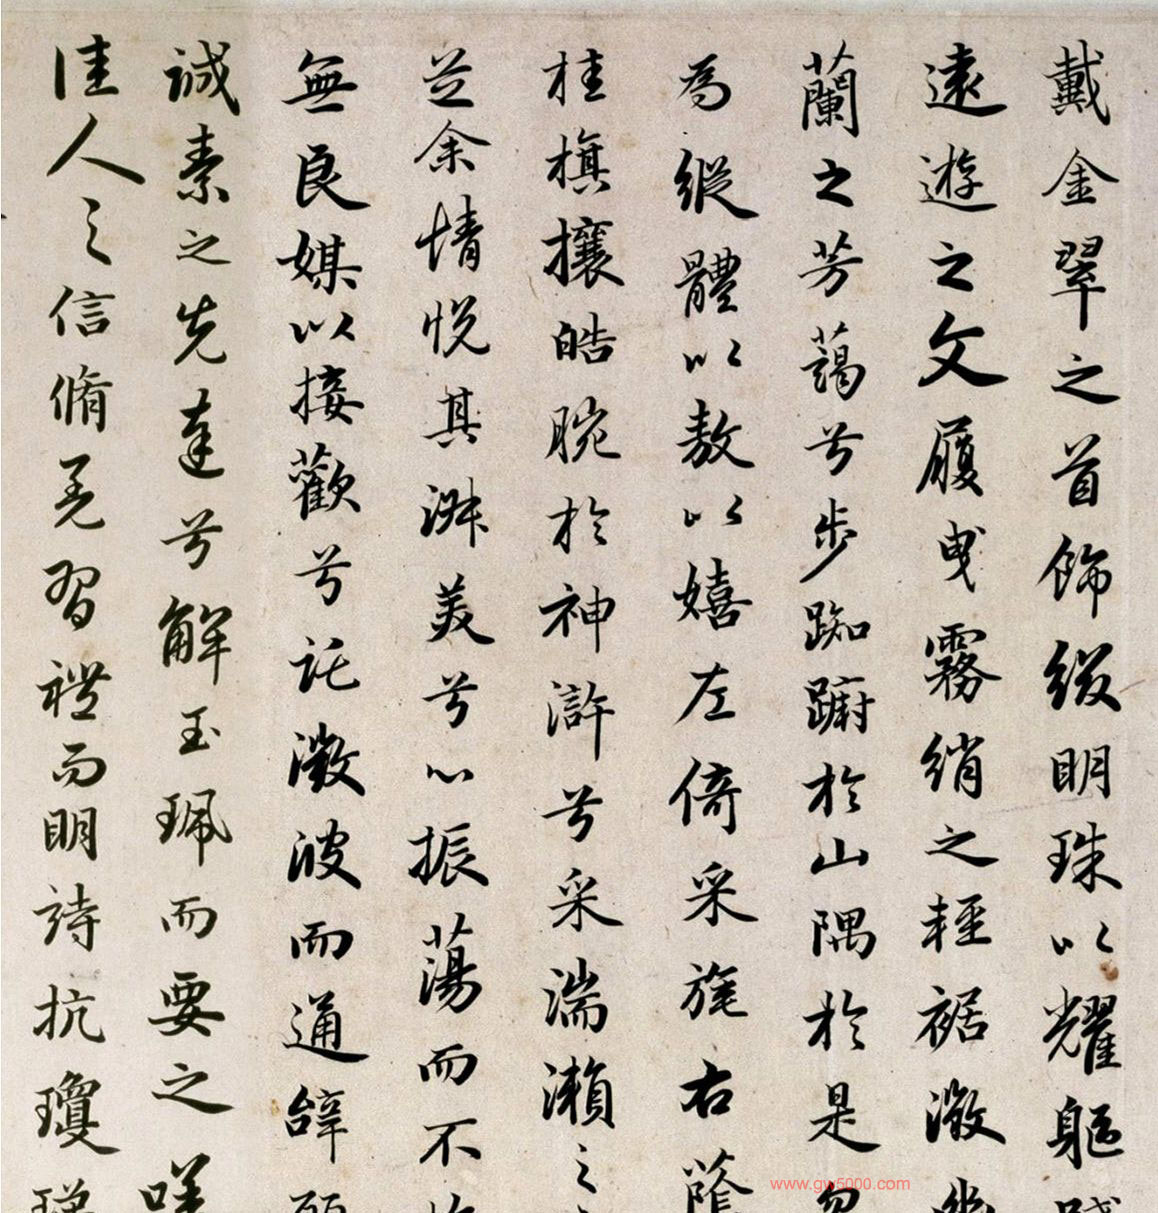 戴金翠之首飾綴明珠以耀軀踐
遠遊之文履曳霧綃之輕裾微幽
蘭之芳藹兮步踟躕於山隅於是忽
焉縱體以敖以嬉左倚采旄右蔭
桂旗攘皓腕於神滸兮采湍瀨之
兮余情悦其淑美兮心振蕩而不怡
無良媒以接歡兮託微波而通辭願
誠素之先達兮解玉珮而要之嗟
佳人之信脩羌習禮而明詩抗瓊瑤
www.gw5000.com